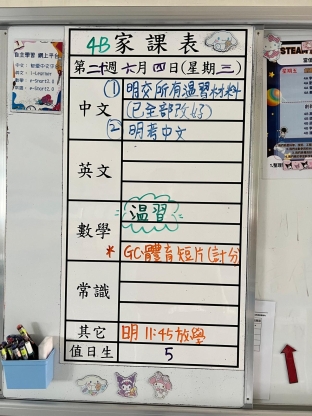 4B 家課表
第二十週六月四日(星期三)
中文
① 明交所有溫習材料
(已全部改好)
② 明考中文
英文
數學
溫習
* GC:體育短片(計分)
常識
其它
明 11:45 放學
值日生
5
自主學習 網上平台
STEAM